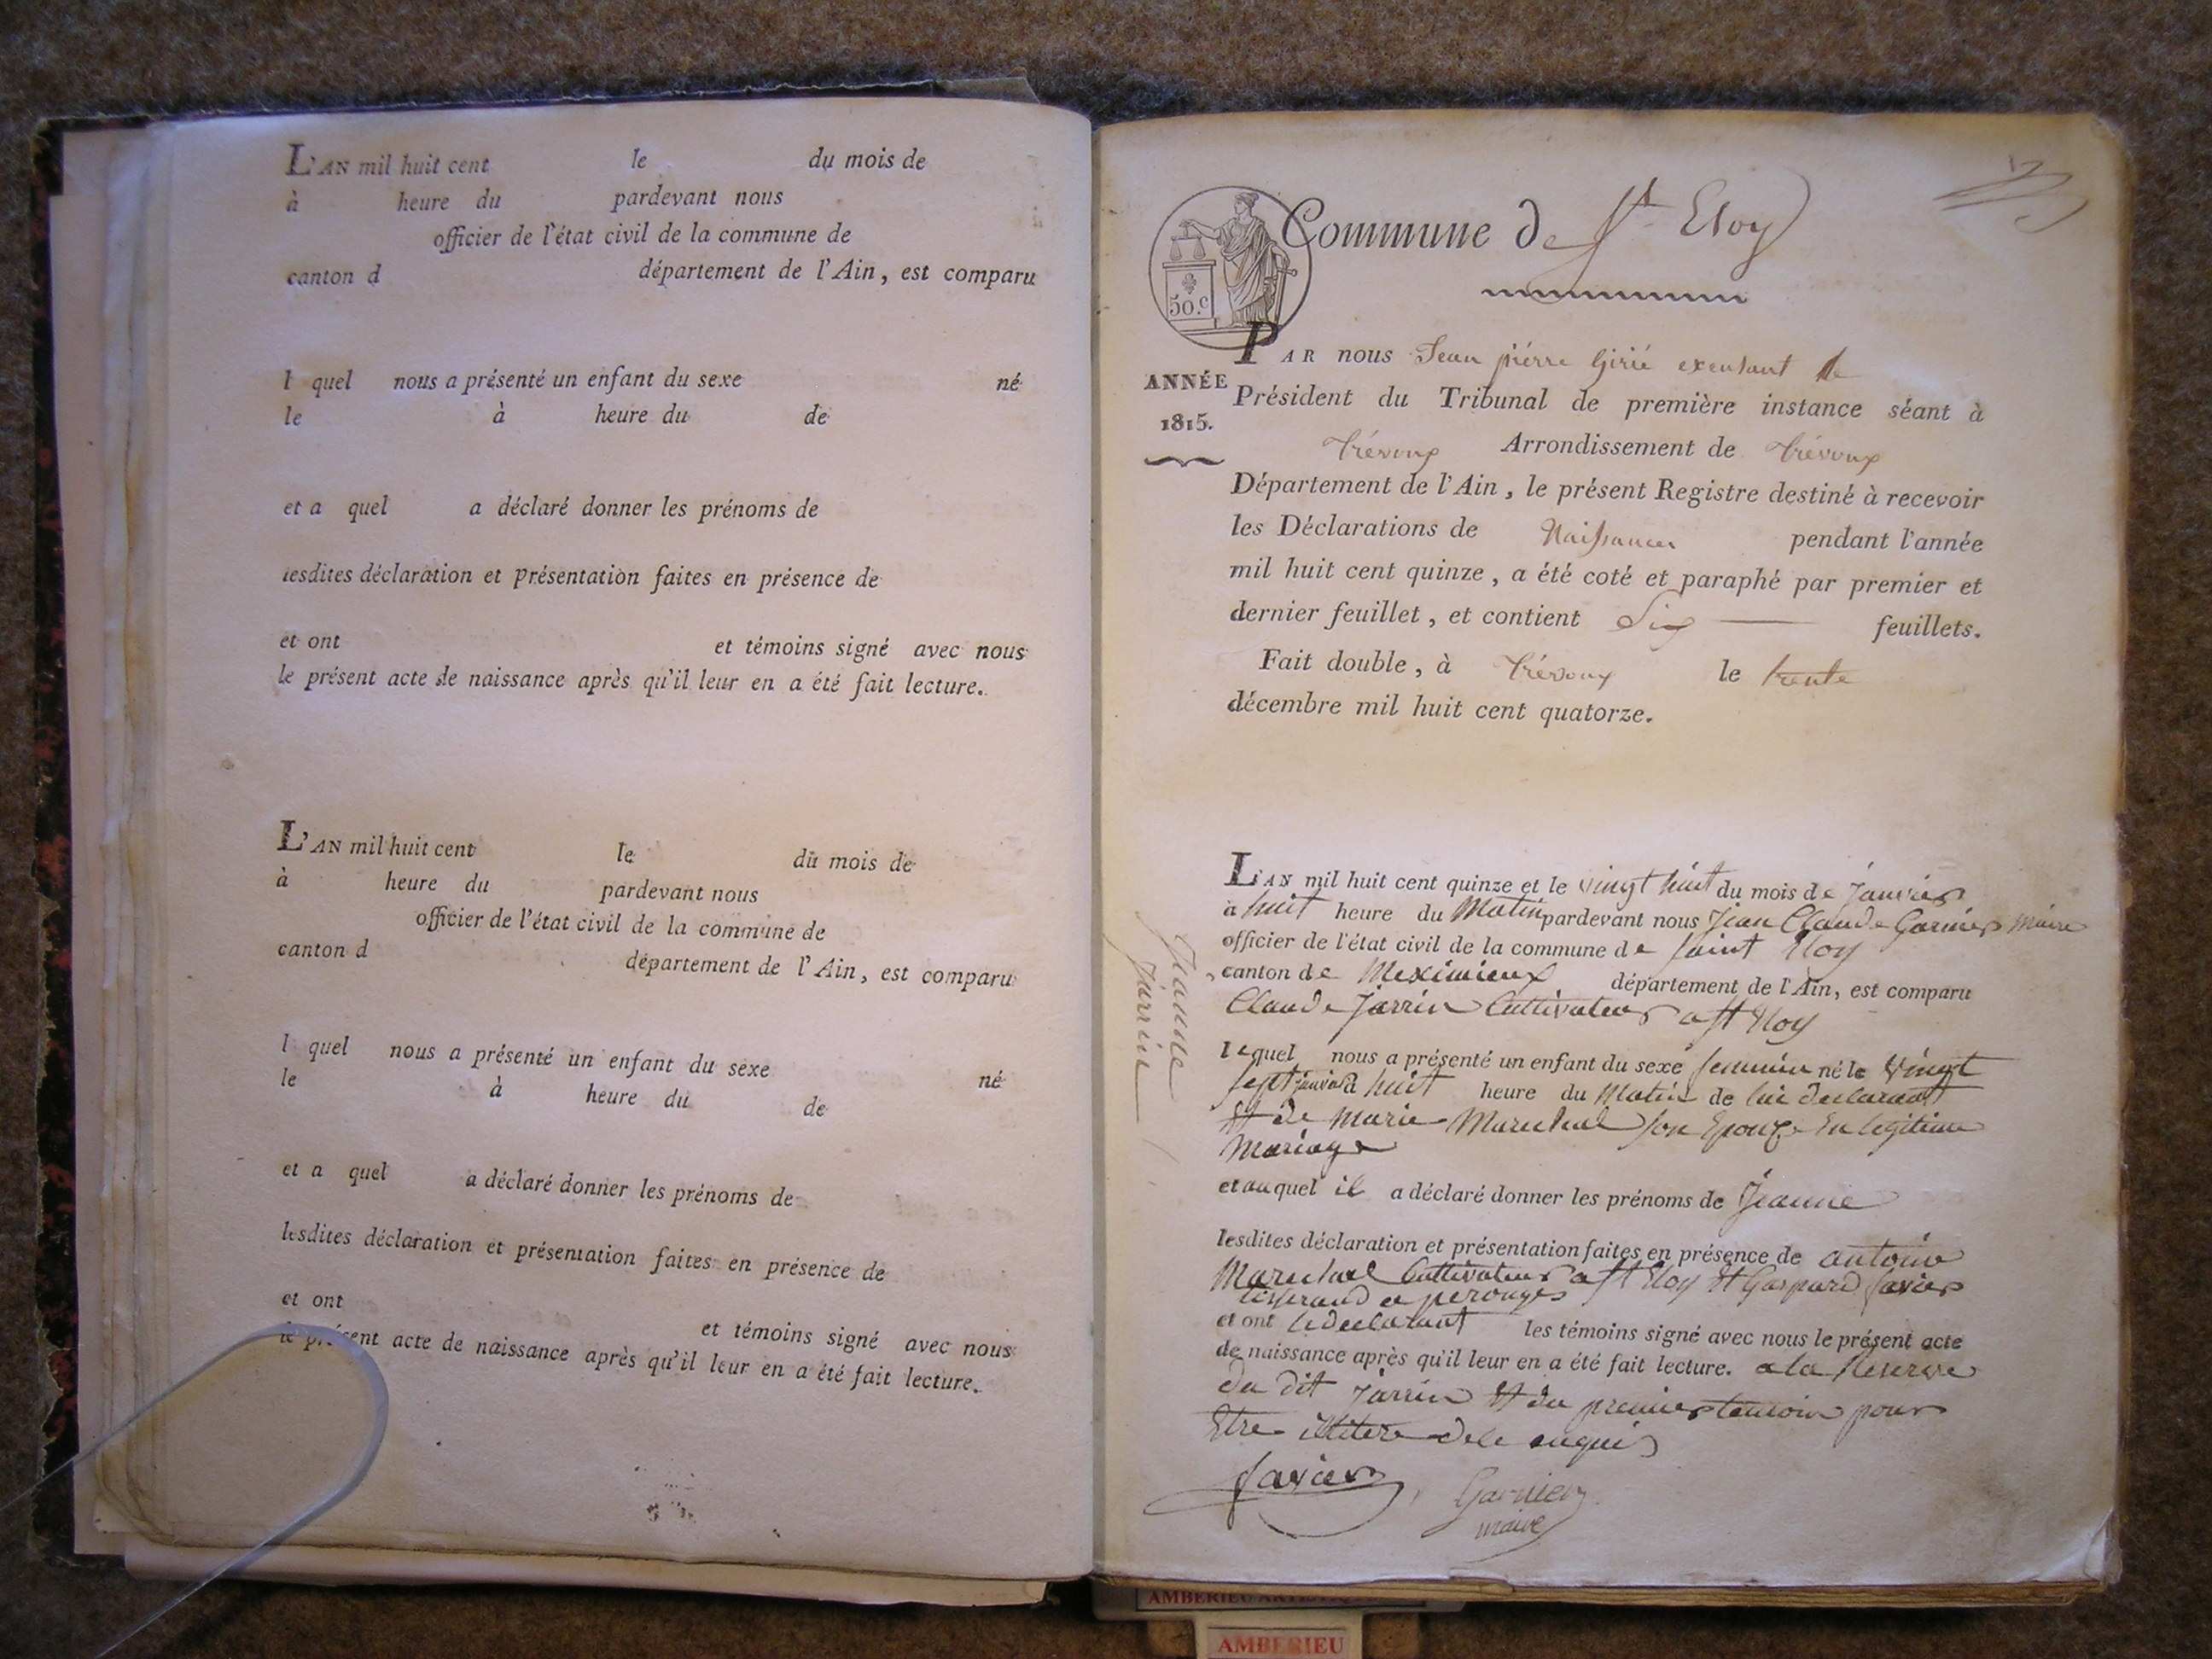 L'AN mil huit cent le du mois de
à heure du pardevant nous
officier de l'état civil de la commune de
canton d département de l'Ain, est comparu
l quel nous a présenté un enfant du sexe né
le à heure du de
et a quel a déclaré donner les prénoms de
lesdites déclaration et présentation faites en présence de
et ont et témoins signé avec nous
le présent acte de naissance après qu'il leur en a été fait lecture.
L'AN mil huit cent le du mois de
à heure du pardevant nous
officier de l'état civil de la commune de
canton d département de l'Ain, est comparu
l quel nous a présenté un enfant du sexe né
le à heure du de
et a quel a déclaré donner les prénoms de
lesdites déclaration et présentation faites en présence de
et ont et témoins signé avec nous
le présent acte de naissance après qu'il leur en a été fait lecture.
Commune de St Eloy
50.c
ANNÉE
1815.
PAR nous Jean pierre
Président du Tribunal de première instance séant à
Trévoux Arrondissement de Trévoux
Département de l'Ain, le présent Registre destiné à recevoir
les Déclarations de Naissances pendant l'année
mil huit cent quinze, a été coté et paraphé par premier et
dernier feuillet, et contient Six feuillets.
Fait double, à Trévoux le trente
décembre mil huit cent quatorze.
Jeanne
Jarrin
L'AN mil huit cent quinze et le vingt huit du mois de Janvier
à huit heure du Matin pardevant nous Jean Claude Garnier Maire
officier de l'état civil de la commune de Saint Eloy
canton de Meximieux département de l'Ain, est comparu
Claude Jarrin Cultivateur a St Eloy
lequel nous a présenté un enfant du sexe feminin né le vingt
sept janvier à huit heure du Matin de lui declarant
Et de Marie Marechal son Epouze En legitime
Mariage
et auquel il a déclaré donner les prénoms de Jeanne
lesdites déclaration et présentation faites en présence de antoine
Marechal Cultivateur a St Eloy Et Gaspard Savier
tisserand a perouges
et ont le declarant les témoins signé avec nous le présent acte
de naissance après qu'il leur en a été fait lecture. a la Reserve
du dit Jarrin Et du premier temoin pour
Etre illitere de ce enquis
Savier
Garnier
maire
AMBERIEU
AMBERIEU